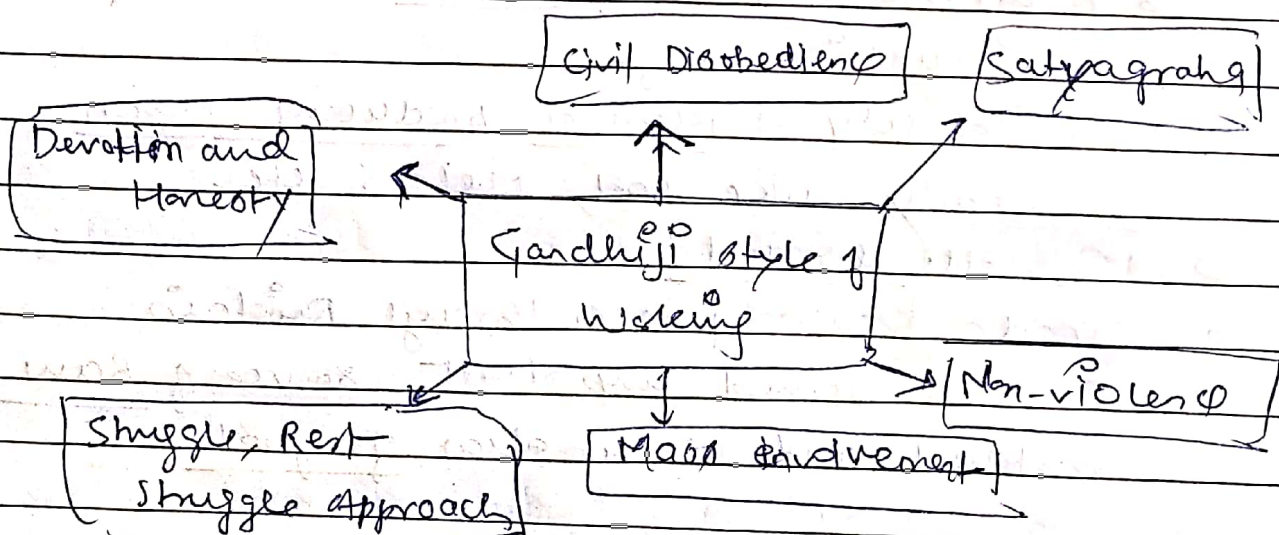 Civil Disobedience
Satyagraha
Devotion and
Honesty
Gandhiji style of
Working
Non-violence
Struggle, Rest
Struggle Approach
Mass involvement